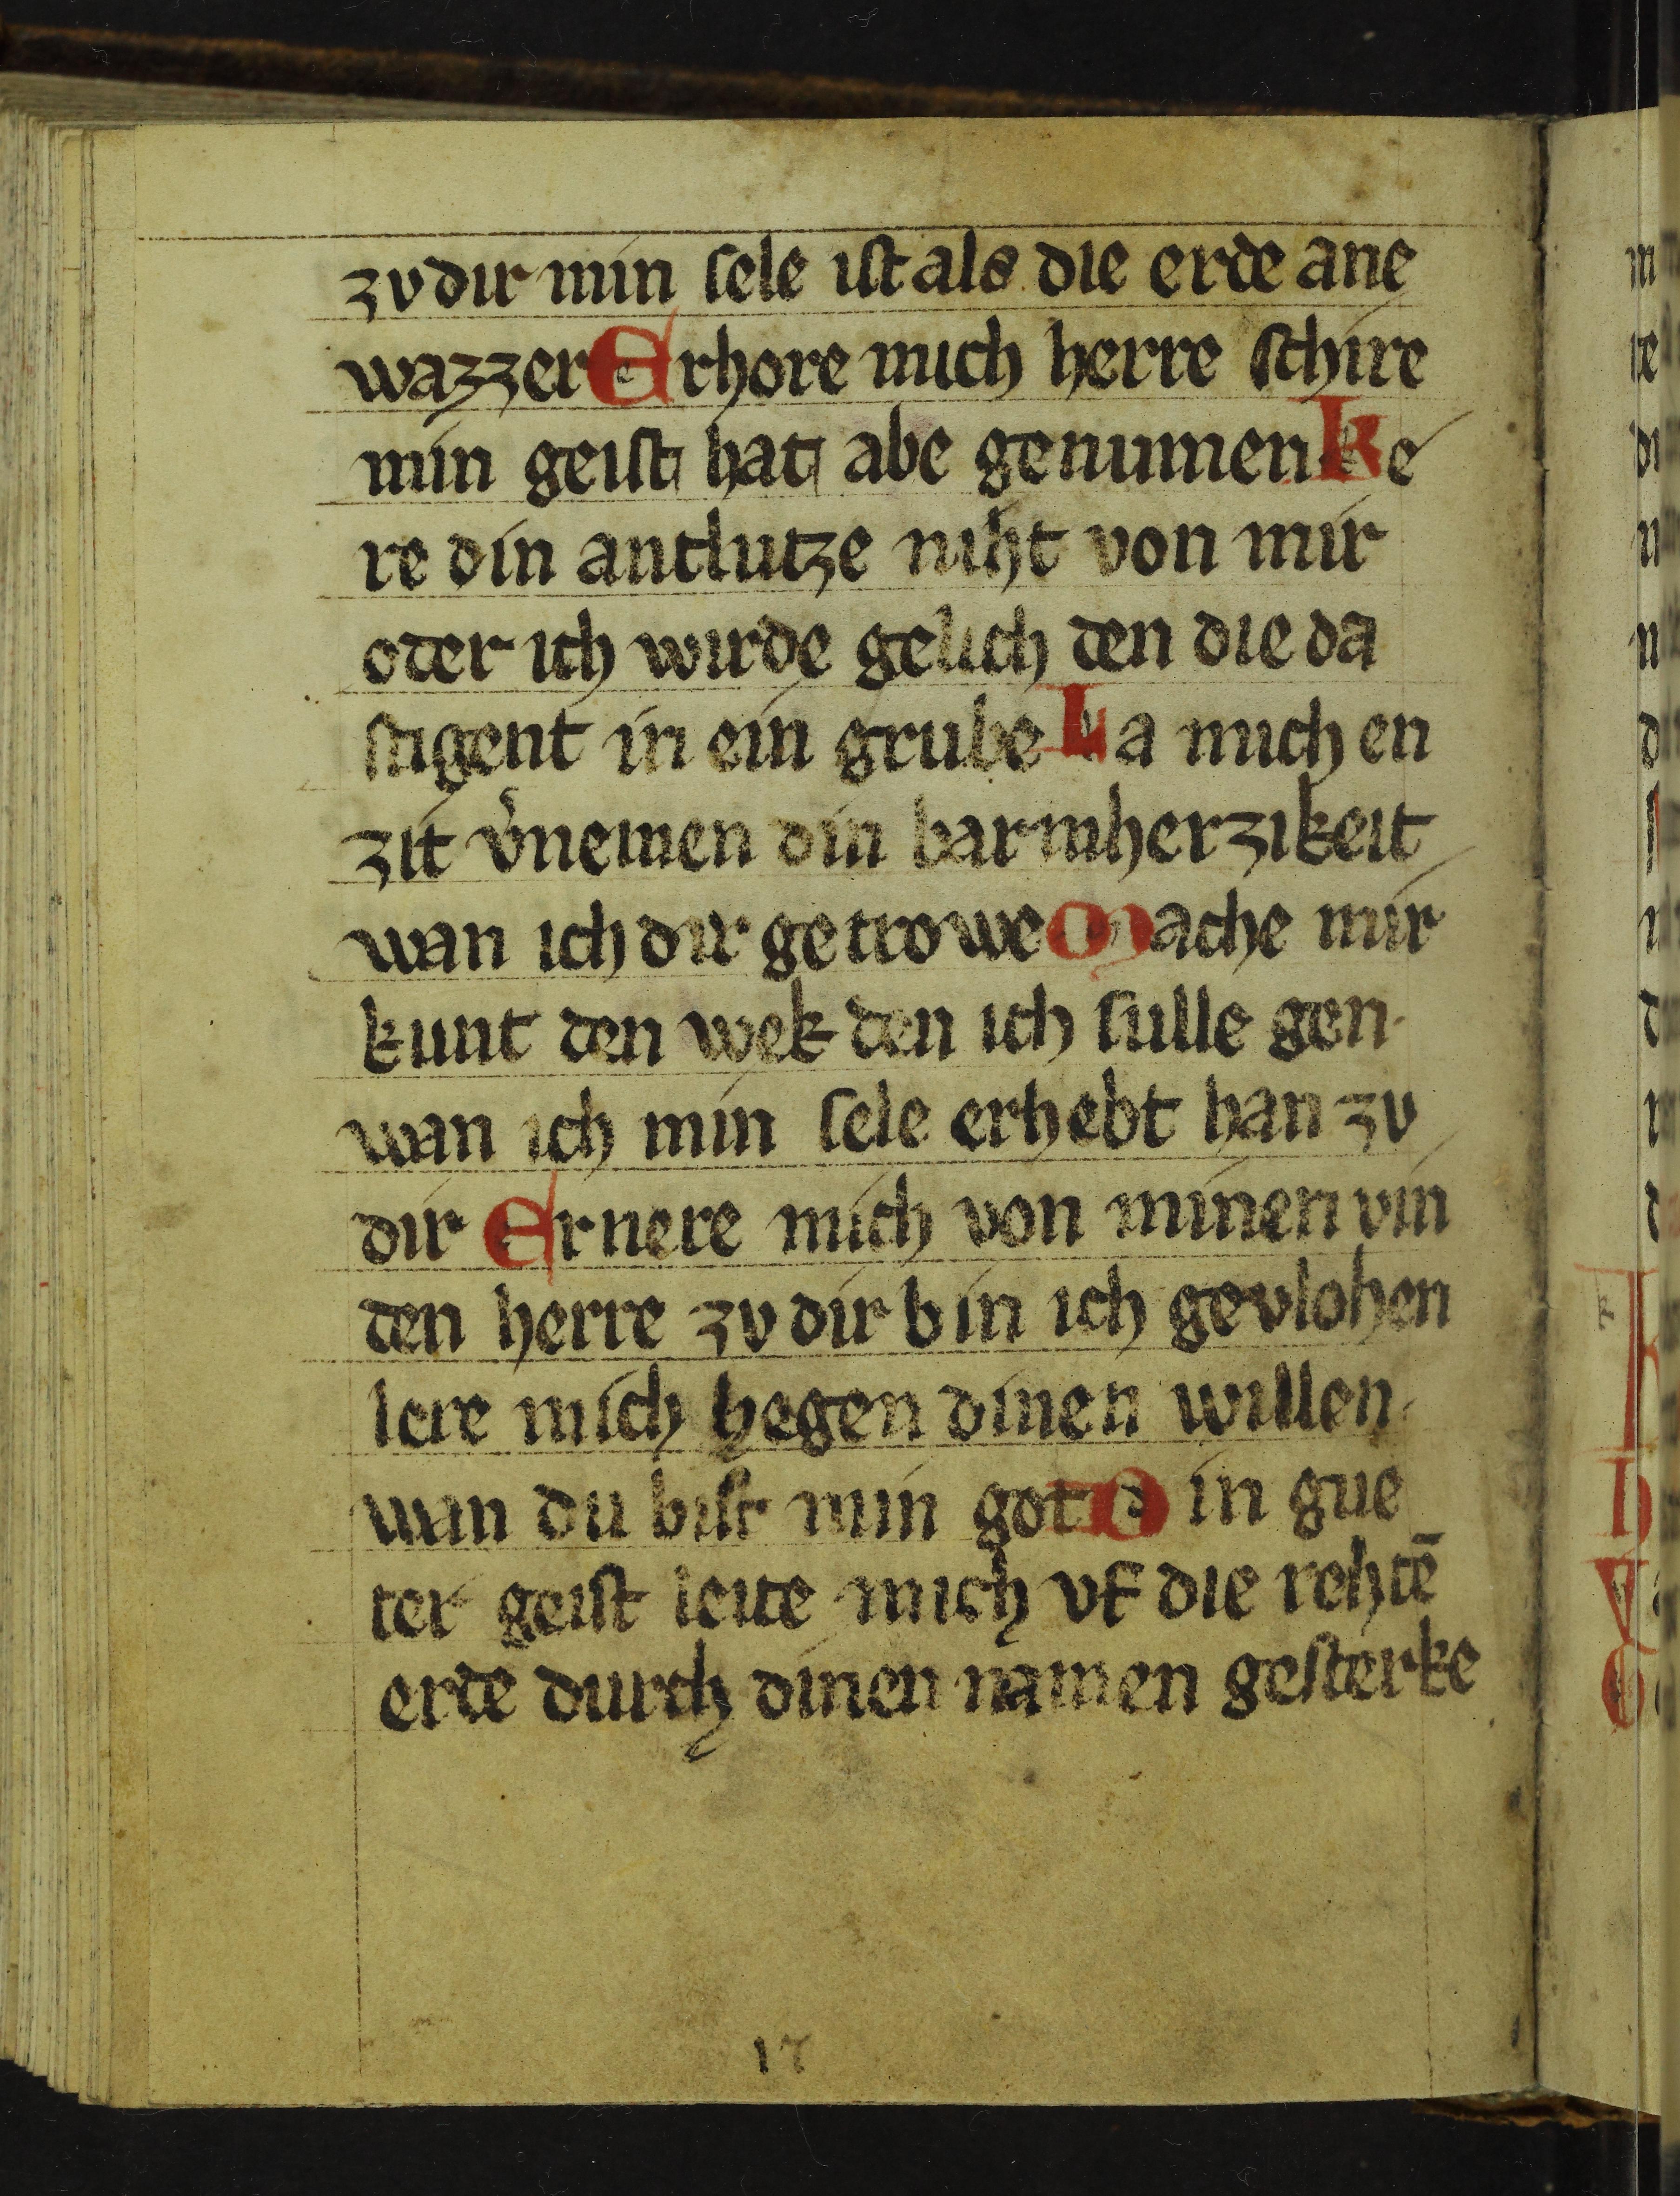 zv dir min sele ist als die erde ane
wazzer Erhore mich herre schire
min geist hat abe genumen Ke
re din antlutze niht von mir
oder ich wirde gelich den die da
stigent in ein grube La mich en
zit v̓nemen din barmherzikeit
wan ich dir getrowe Mache mir
kunt den wek den ich sulle gen·
wan ich min sele erhebt han zv
dir Ernere mich von minen vin
den herre zv dir bin ich gevlohen
lere mich hegen dinen willen·
wan du bist min got Din gue
ter geist leite mich vf die rehtē
erde durch dinen namen gesterke